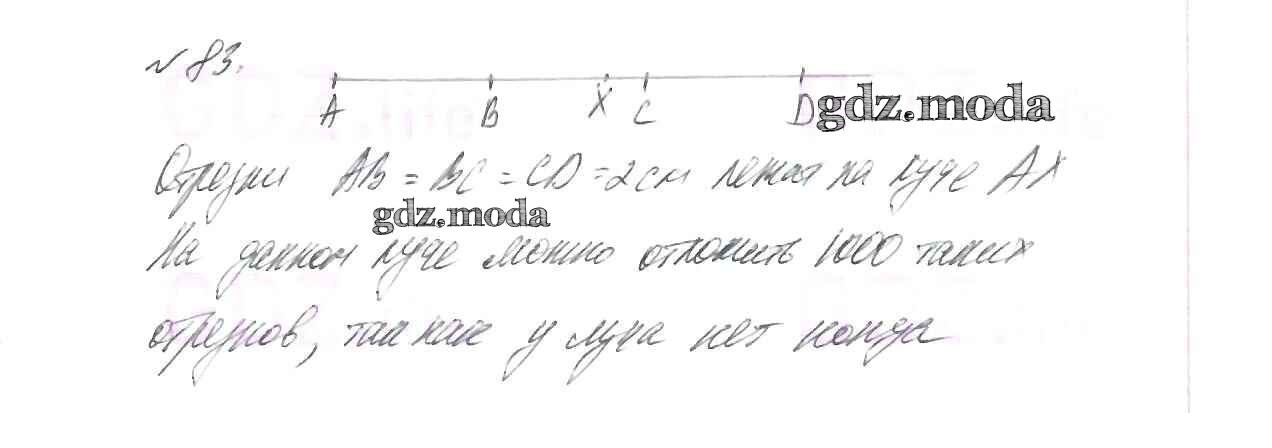 № 83.
A B X C D
gdz.moda
Отрезки AB = BC = CD = 2 см лежат на луче AX
gdz.moda
На данном луче можно отложить 1000 таких
отрезков, так как у луча нет конца